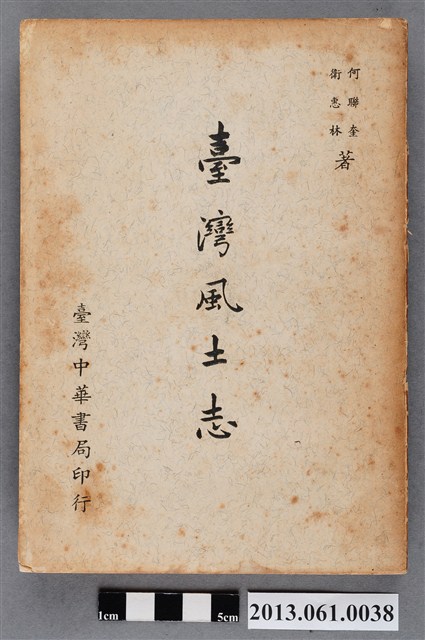 何聯奎
衛惠林
著
臺灣風土志
臺灣中華書局印行
1cm
5cm
2013.061.0038